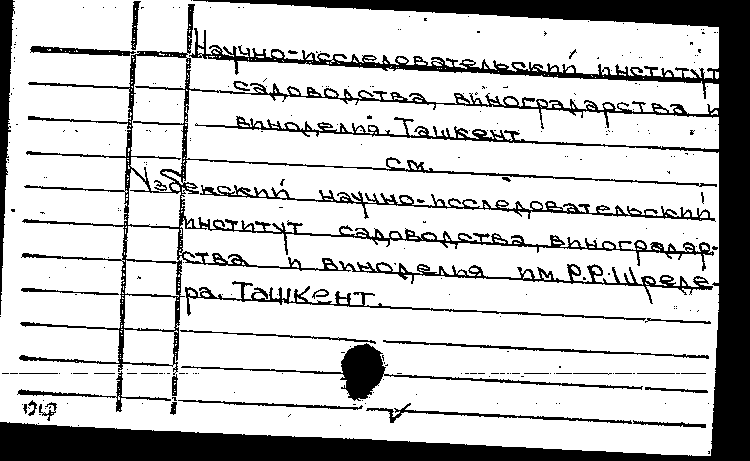 Научно-исследовательский институт
садоводства, виноградарства и
виноделия. Ташкент.
см.
Узбекский научно-исследовательский
институт садоводства, виноградар-
ства и виноделия им. Р.Р. Шреде-
ра. Ташкент.